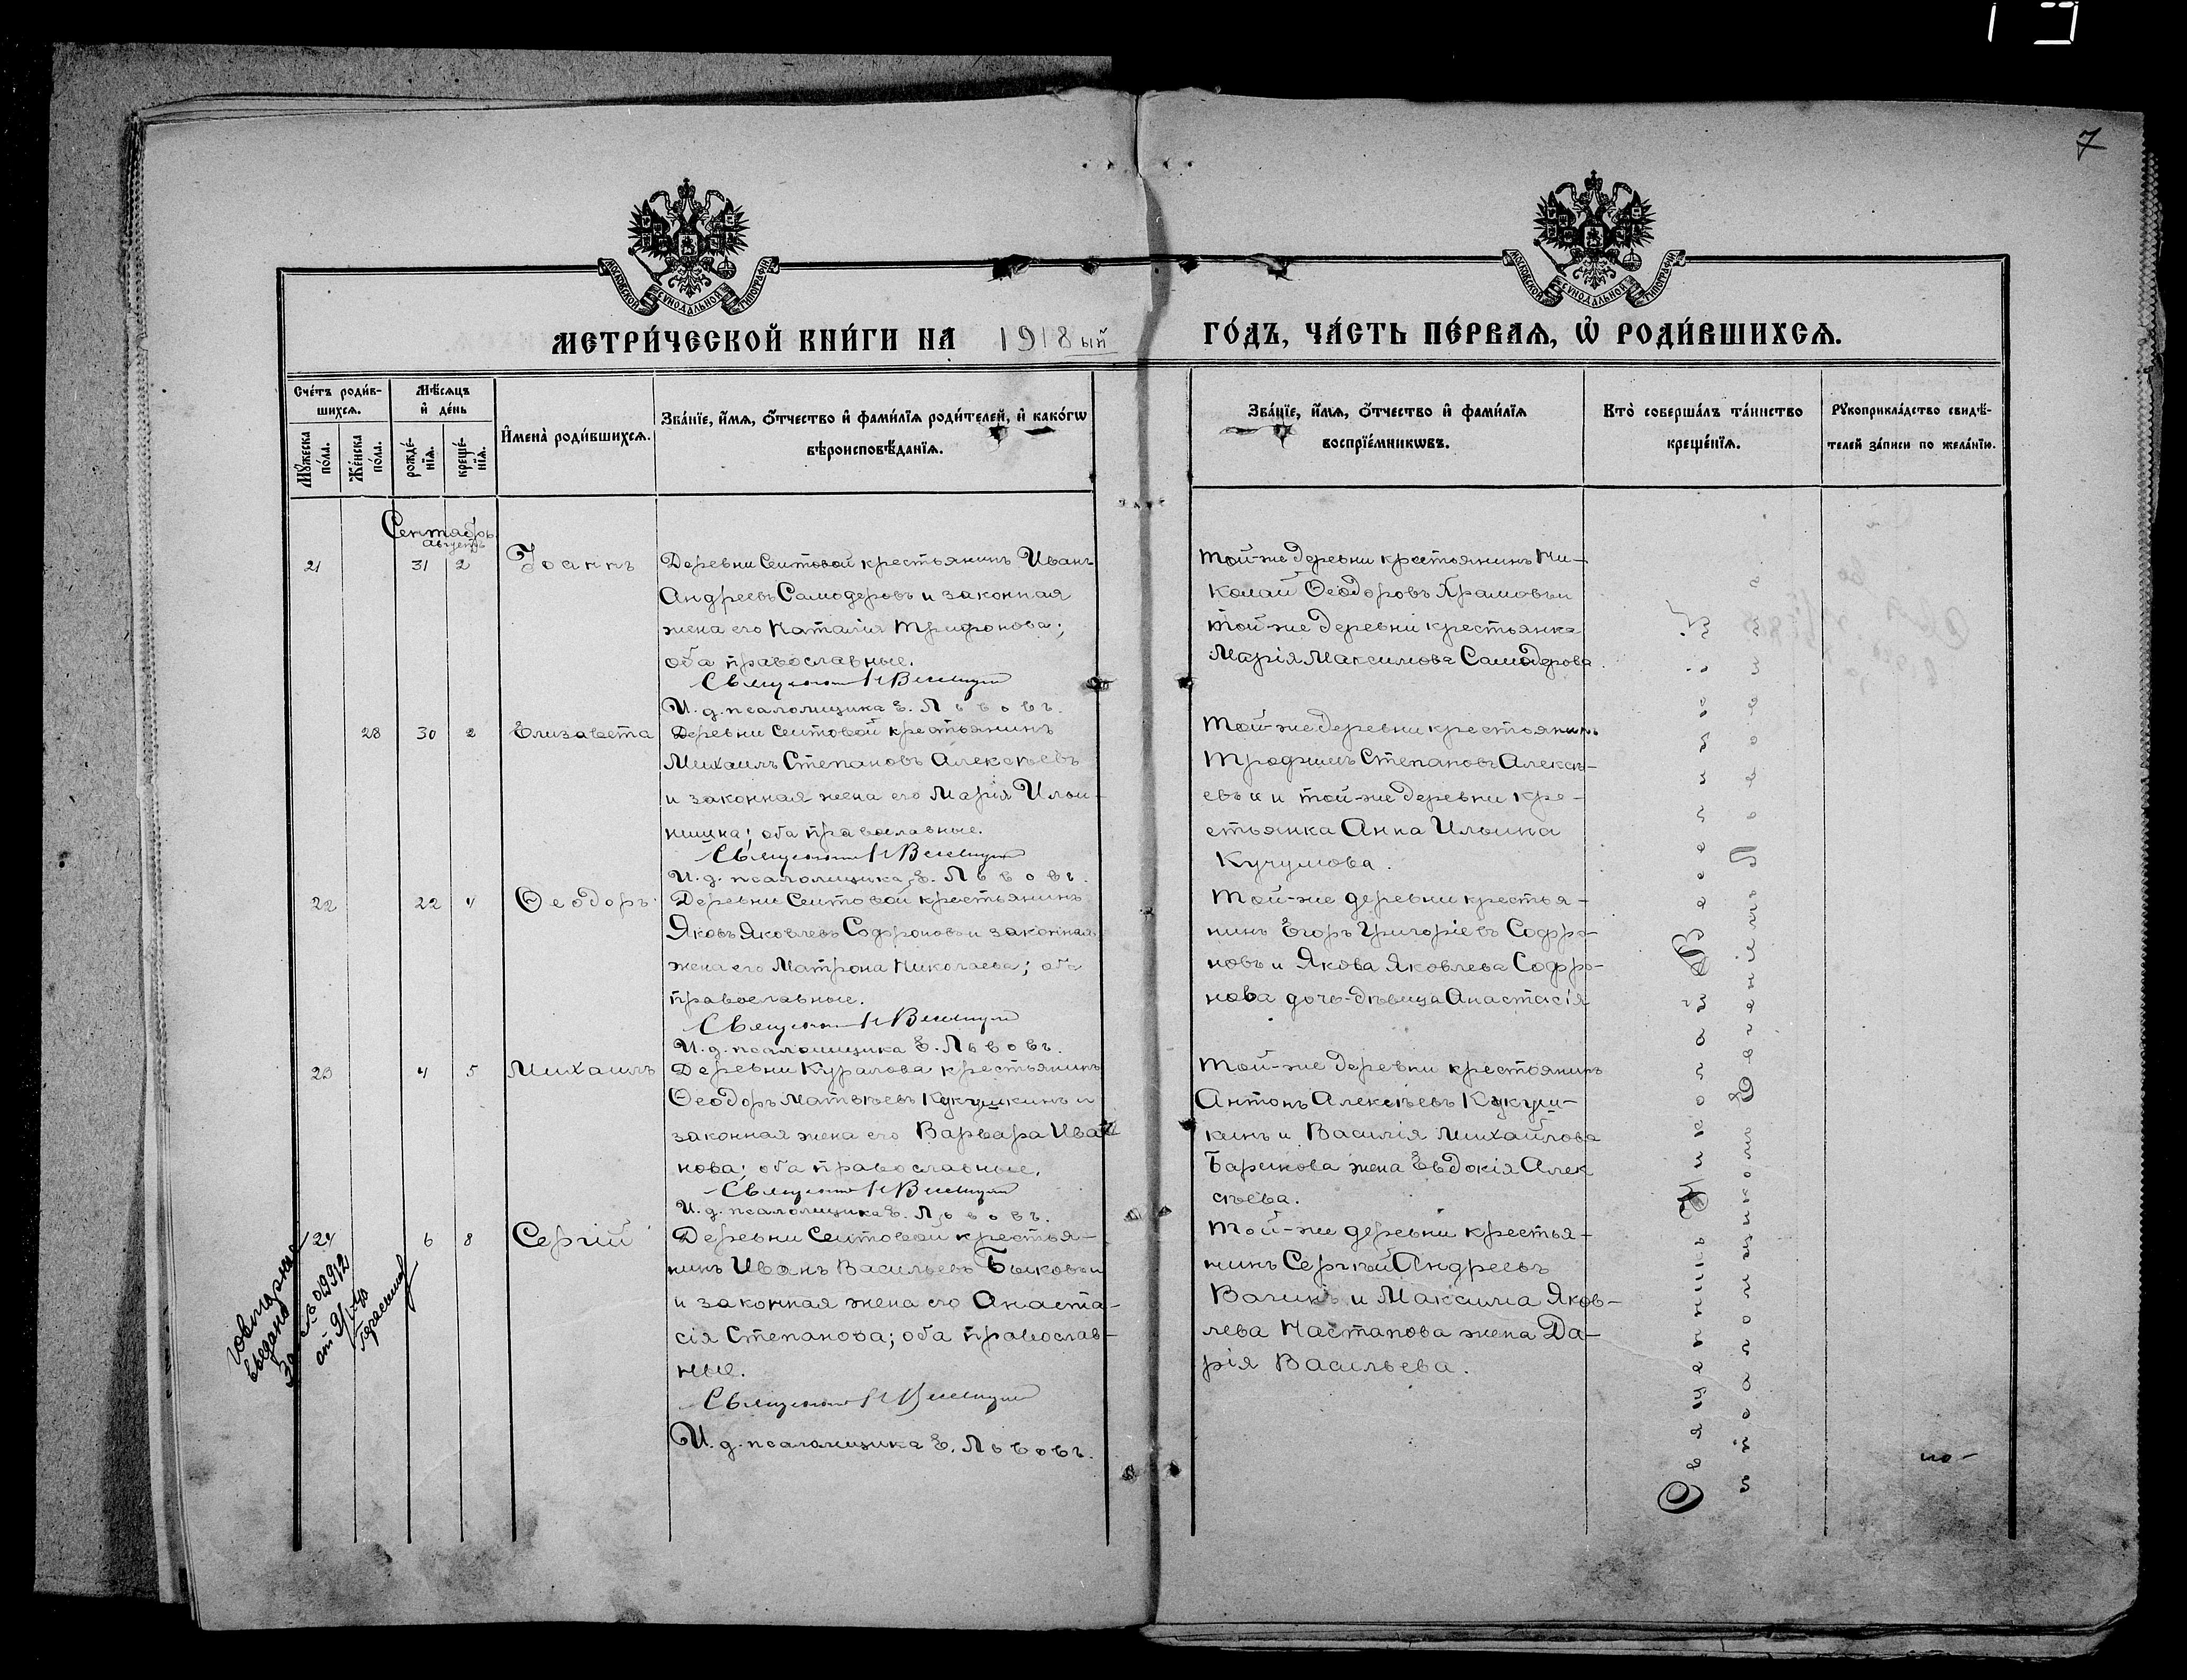 7
МОСКОВСКОЙ СѴНОДАЛЬНОЙ ТИПОГРАФІИ
МОСКОВСКОЙ СѴНОДАЛЬНОЙ ТИПОГРАФІИ
МЕТРИ́ЧЕСКОЙ КНИ́ГИ НА 1918 ый ГО́ДЪ, ЧА́СТЬ ПЕ́РВАѦ, Ѡ РОДИ́ВШИХСѦ.
Сче́тъ роди́в-
шихсѧ.
Мꙋ́жеска по́ла.
Же́нска по́ла.
Мѣ́сѧцъ
и҆ де́нь
рожде́-
нїѧ.
креще́-
нїѧ.
И҆мена̀ роди́вшихсѧ.
Зва́нїе, и҆́мѧ, ѻ҆́тчество и҆ фами́лїѧ роди́телей, и҆ како́гѡ
вѣроисповѣ́данїѧ.
Зва́нїе, и҆́мѧ, ѻ҆́тчество и҆ фами́лїѧ
воспрїе́мникѡвъ.
Кто̀ соверша́лъ та́инство
креще́нїѧ.
Рꙋкоприкла́дство свидѣ́-
телей за́писи по жела́нїю.
Сентябрь
августъ
21 31 2 Іоаннъ
Деревни Сеитовой крестьянинъ Иванъ
Андреевъ Самодеровъ и законная
жена его Наталія Трифонова;
оба православные.
И. д. псаломщика Е. Львовъ.
Той-же деревни крестьянинъ Ни-
колай Ѳеодоровъ Храмовъ и
той-же деревни крестьянка
Марія Максимова Самодерова.
28 30 2 Елизавета
Деревни Сеитовой крестьянинъ
Михаилъ Степановъ Алексѣевъ
и законная жена его Марія Ильи-
нишна; оба православные.
И. д. псаломщика Е. Львовъ.
Той-же деревни крестьянинъ
Трофимъ Степановъ Алексѣ-
евъ и и той-же деревни кре-
стьянка Анна Ильина
Кучумова.
22 22 4 Ѳеодоръ
Деревни Сеитовой крестьянинъ
Яковъ Яковлевъ Софроновъ и законная
жена его Матрона Николаева; оба
православные.
И. д. псаломщика Е. Львовъ.
Той-же деревни крестья-
нинъ Егоръ Григоріевъ Софро-
новъ и Якова Яковлева Софро-
нова дочь-дѣвица Анастасія
23 4 5 Михаилъ
Деревни Куралова крестьянинъ
Ѳеодоръ Матвѣевъ Кукушкинъ и
законная жена его Варвара Ива
нова; оба православные.
И. д. псаломщика Е. Львовъ.
Той-же деревни крестьянинъ
Антонъ Алексѣевъ Кукуш-
кинъ и Василія Михайлова
жена Евдокія Алек
сѣева.
24 6 8 Сергій
Деревни Сеитовой крестья-
нинъ Иванъ Васильевъ Быковъ и
и законная жена его Анаста-
сія Степанова; оба православ-
ные.
И. д. псаломщика Е. Львовъ.
Той-же деревни крестья-
нинъ Сергѣй Андреевъ
Вагинъ и Максима Яков-
лева жена Да-
рія Васильева.
Священникъ Николай
съ псаломщикомъ